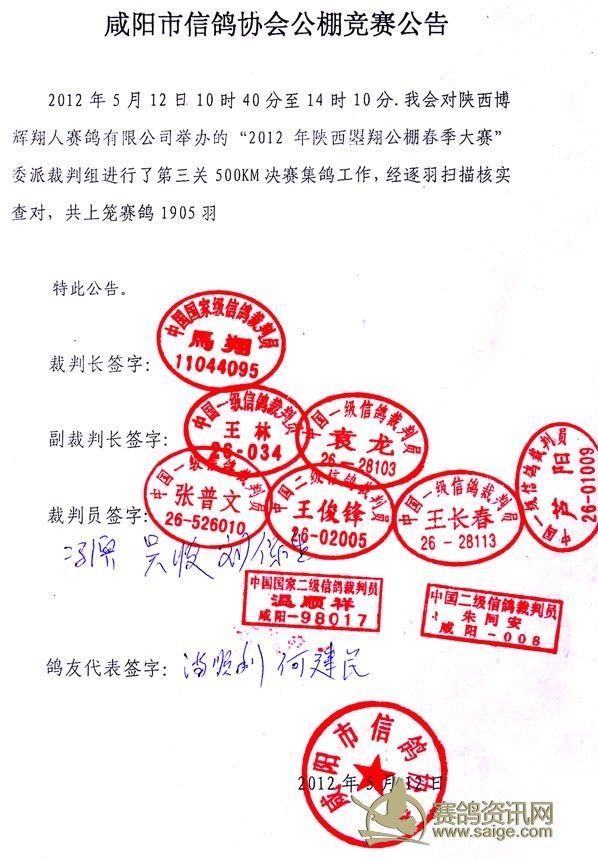 咸阳市信鸽协会公棚竞赛公告
2012年5月12日10时40分至14时10分.我会对陕西博
辉翔人赛鸽有限公司举办的“2012 年陕西曌翔公棚春季大赛”
委派裁判组进行了第三关 500KM 决赛集鸽工作,经逐羽扫描核实
查对,共上笼赛鸽1905羽
特此公告。
中国国家级信鸽裁判员
马翔
11044095
裁判长签字:
中国一级信鸽裁判员
王林
26-034
中国一级信鸽裁判员
袁龙
26-28103
副裁判长签字:
中国一级信鸽裁判员
张普文
26-526010
中国二级信鸽裁判员
王俊锋
26-02005
中国一级信鸽裁判员
王长春
26-28113
中国一级信鸽裁判员
芦阳
26-01009
裁判员签字:
中国国家二级信鸽裁判员
温顺祥
咸阳-98017
中国二级信鸽裁判员
朱同安
咸阳-008
鸽友代表签字:
何建民
咸阳市信鸽协会
2012年5月12日
赛鸽资讯网
www.saige.com